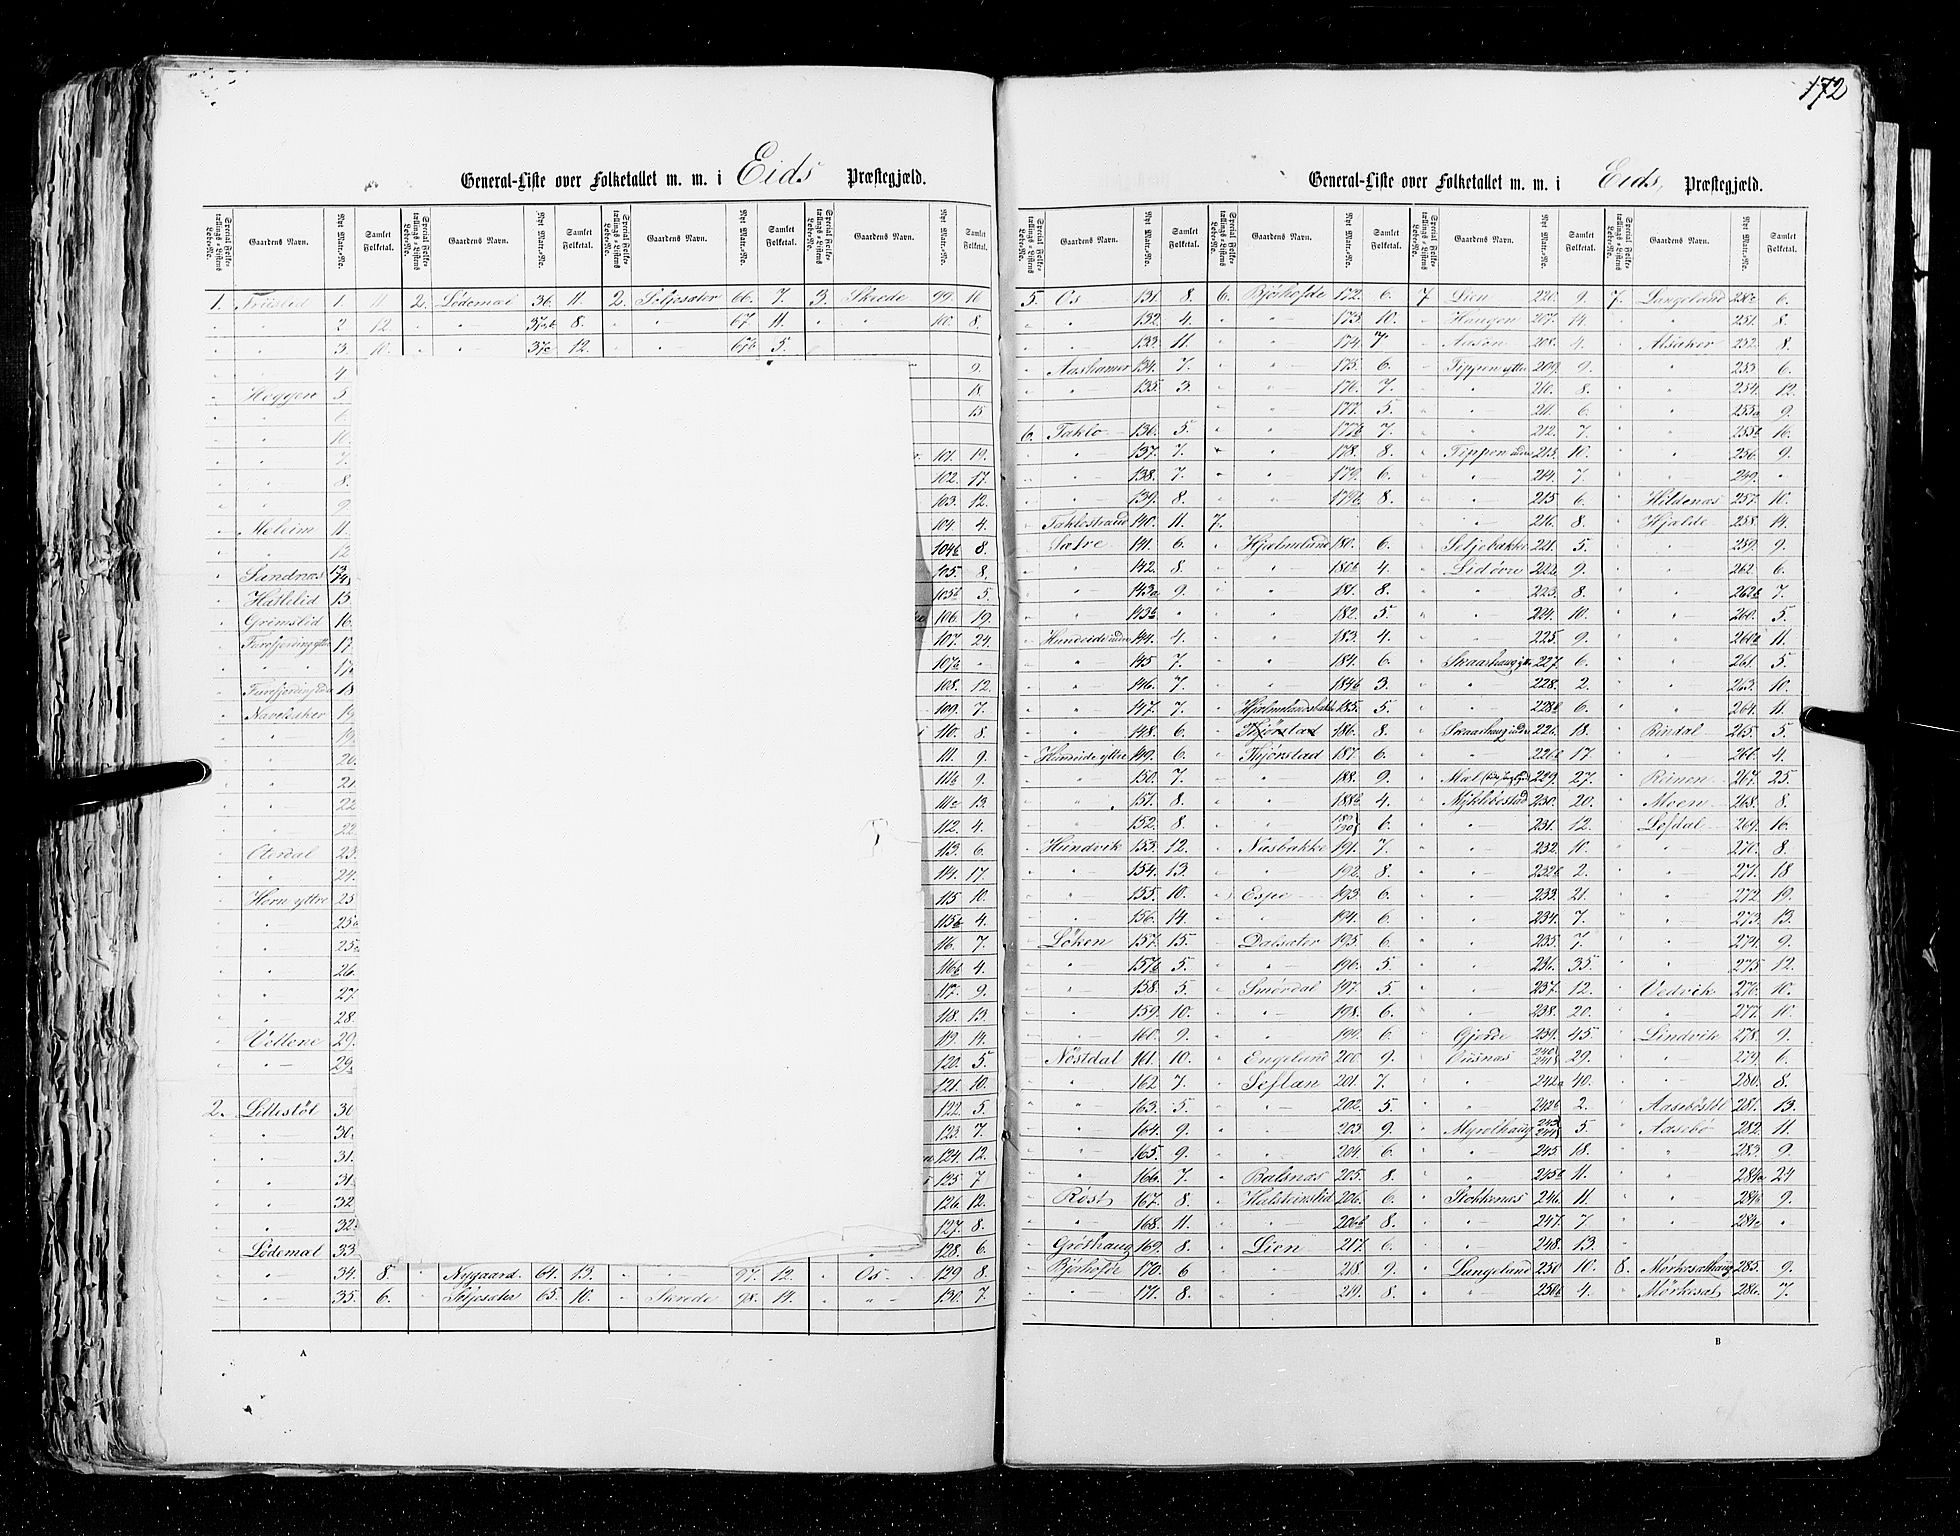 172
General-Liste over Folketallet m. m. i Eids Præstegjæld.
Special Folketællings-Listens Løbe-No. Gaardens Navn. Nyt Matr.-No. Samlet Folketal. Special Folketællings-Listens Løbe-No. Gaardens Navn. Nyt Matr.-No. Samlet Folketal. Special Folketællings-Listens Løbe-No. Gaardens Navn. Nyt Matr.-No. Samlet Folketal. Special Folketællings-Listens Løbe-No. Gaardens Navn. Nyt Matr.-No. Samlet Folketal.
1. 1. 11 2. Lødemæl 36. 11. 2. Seljesæter 66. 7. 3. Skrede 99. 10
" " 2 12. " " 37ab 8. " " 67. 11. " " 100. 8.
" " 3. 10. " " 37c 12. " " 67b 5.
" " 4. 9.
" Heggen 5 18.
" " 6. 15
" " 10.
" " 7. 101. 19.
" " 8. 102. 17.
" " 9. 103. 12.
" Meleim 11. 104. 4.
" " 12 104b 8.
" Sandnæs 13 14 105. 8.
" Hatlelid 15. 105b 5.
" Grimslid 16. 106. 19.
" 17. 107. 24.
" " 17b 107b "
" 18 108. 12.
" Navelsaker 19. 109. 7.
" " 19. 110. 8.
" " 20. 111. 9.
" " 21. 111b 9.
" " 22. 111c 13.
" " 22. 112. 4.
" Oterdal 23. 113. 6.
" " 24. 114. 17.
" Horn yttre 25 115 10.
" " 25b 115b 4.
" " 25c 116. 7.
" " 26. 116b 4.
" " 27. 117. 9.
" " 28. 118. 13.
" Vellene 29. 119. 14.
" " 29a 120. 5.
121. 10.
2. Lotestøl 30. 122. 5.
" " 30. 123. 7.
" " 31. 124. 12.
" " 31. 125 7
" " 32. 126. 12.
" " 32. 127. 8.
" Lødemæl 33. 128. 6.
" " 34. 8. " Nygaard 64. 13. " " 97. 12. " Os 129 8.
" " 35. 6. " Seljesæter 65. 10. " Skrede 98. 14. " " 130. 7
A
General-Liste over Folketallet m. m. i Eids, Præstegjæld.
Special Folketællings-Listens Løbe-No. Gaardens Navn. Nyt Matr.-No. Samlet Folketal. Special Folketællings-Listens Løbe-No. Gaardens Navn. Nyt Matr.-No. Samlet Folketal. Special Folketællings-Listens Løbe-No. Gaardens Navn. Nyt Matr.-No. Samlet Folketal. Special Folketællings-Listens Løbe-No. Gaardens Navn. Nyt Matr.-No. Samlet Folketal.
5. Os 131. 8. 6. Bjørhofde 172. 6. 7 Lien 220. 9. 7. Langeland 250c 6.
" " 132. 4. " " 173. 10. " Haugen 207. 14. " " 251. 8.
" " 133. 11. " " 174. 7 " Aasen 208. 4. " Alsaker 252. 8.
" Aashamer 134. 7. " " 175. 6. " Tippen yttre 209. 9. " " 253. 6.
" " 135. 3. " " 176. 7. " " 210. 8. " " 254. 12.
" " 177. 5. " " 211. 6. " " 255a 9.
6. Taklo 136. 5. " " 177b 7. " " 212. 7. " " 255b 16.
" " 137. 7. " " 178. 8. " Tippen indre 213. 10. " " 256. 9.
" " 138. 7. " " 179. 6. " " 214. 7. " " 249. "
" " 139. 8. " " 179b 8. " " 215 6. " Hildenæs 257. 10.
" Taklostrand 140. 11. 7. " " 216. 8. " Hjelde 258. 14.
" Sætre 141. 6. " Hjelmeland 180. 6. " Seljebakke 221. 5. " " 259. 9.
" " 142. 8. " " 180b 4. " Lid øvre 222. 9. " " 262. 6.
" " 143a 9. " " 181. 8. " " 223. 8. " " 262b 7.
" " 143b " " " 182. 5. " " 224. 10. " " 260. 5
" Hundeide indre 144. 4. " " 183. 4. " " 225. 9. " " 260b 11.
" " 145 7. " " 184. 6. " Skaarhaug yttre 227. 6. " " 261. 5
" " 146. 7. " " 184b 3. " " 228. 2. " " 263. 10.
" " 147. 7. " Hjelmelandsbakke 185. 5. " " 228b 6. " " 264. 11.
" " 148. 6. " 186. 8. " Skaarhaug indre 226. 18. " Rindal 265. 5.
" Hunneide yttre 149. 6. " Thjørstad 187. 6. " " 226b 17. " " 266. 4.
" " 150. 7. " " 188. 9. " Mæl 229. 27. " Reinen 267. 25.
" " 151. 8. " " 188b 4. " Myklebostad 230. 20. " Moen 268. 8.
" " 152. 8. " " 189 190 6. " " 231. 12. " Løfdal 269. 16.
" Hundvik 153. 12. " Næsbakke 191. 7. " " 232. 10. " " 270. 8.
" " 154. 13. " " 192. 8. " " 232b 2. " " 271. 18
" " 155. 10. " Espe 193. 6. " " 233. 21. " " 272. 19.
" " 156. 14. " " 194. 6. " " 234. 7. " " 273. 13.
" Løken 157. 15. " Dalsæter 195. 6. " " 235. 7. " " 274. 9.
" " 157b 5. " " 196. 5. " " 236. 35. " " 275 12.
" " 158. 5. " Smørdal 197. 5 " " 237. 12. " Vedvik 276. 10.
" " 159. 10. " " 198. 6. " " 238. 20. " " 277. 10.
" " 160. 9. " " 199. 6 " Gjerde 239. 45. " Lindvik 278. 9.
" Nøstdal 161. 10. " Engeland 200. 9. " Ousnæs 240 241 29. " " 279. 6.
" " 162 7. " Seflan 201. 7. " " 242a 40. " " 280. 8.
" " 163. 5. " " 202. 5. " " 242b 2. " Aasebøstøl 281. 13.
" " 164. 9. " " 203 9. " Myrolhaug 243 244 5 " Aasebø 282. 11.
" " 165. 9. " " 204. 6. " " 245 18. " " 283. 9.
" " 166. 7. " Balsnæs 205. 8. " " 245b 11. " " 284a 24
" Røst 167. 8. " Halsteinslid 206. 6. " Stokkenæs 246. 11. " " 284b 9.
" " 168. 11. " " 206b 8. " " 247. 7. " " 284c "
" Grøthaug 169. 8. " Lien 217. 6. " " 248. 13. "
" Bjørhofde 170. 6 " " 218. 9. " Langeland 250 10. 8. Mørkesæthaug 285. 9.
" " 171. 8. " " 219. 8. " " 250b 4. " Mørkesæt 286. 7.
B